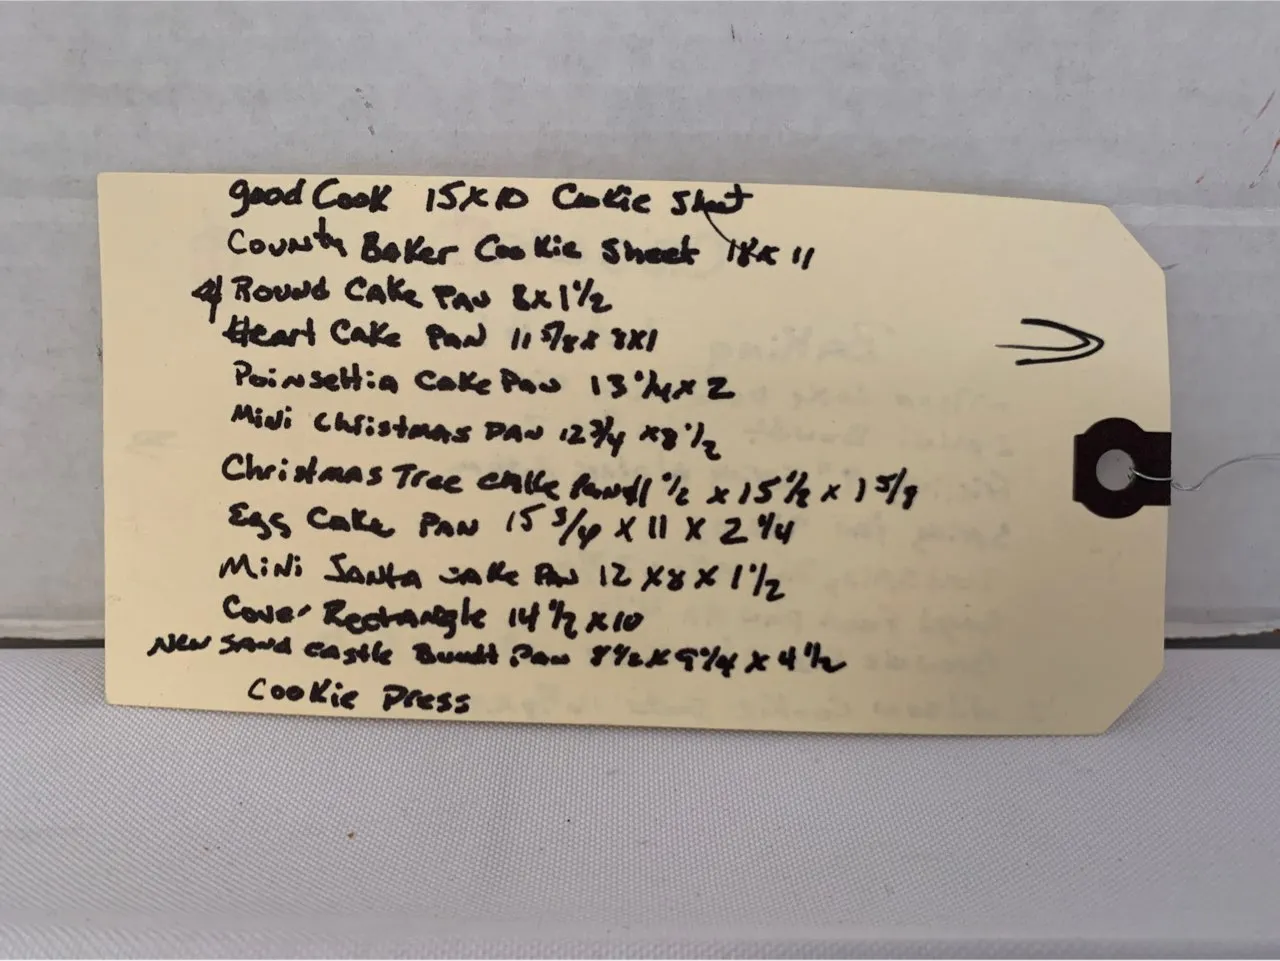 good Cook 15 x 10 Cookie Sheet
County Baker Cookie Sheet 18 x 11
4 Round Cake Pan 8 x 1 1/2
Heart Cake Pan 11 5/8 x 8 x 1
Poinsettia Cake Pan 13 1/4 x 2
Mini Christmas Pan 12 3/4 x 8 1/2
Christmas Tree Cake Pan 11 1/2 x 15 1/2 x 1 5/8
Egg Cake Pan 15 3/4 x 11 x 2 1/4
Mini Santa Cake Pan 12 x 8 x 1 1/2
Cover Rectangle 14 1/2 x 10
New Sand Castle Bundt Pan 8 1/2 x 9 1/4 x 4 1/2
Cookie Press